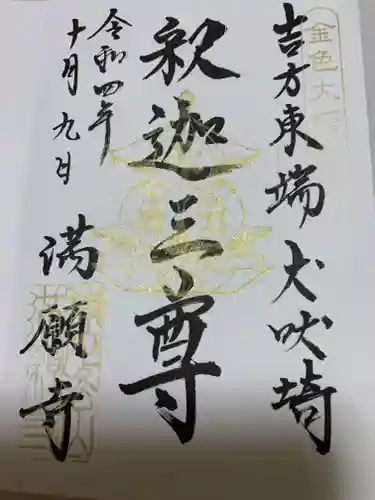 吉方東端犬吠埼
釈迦三尊
令和四年
十月九日
満願寺
金色大